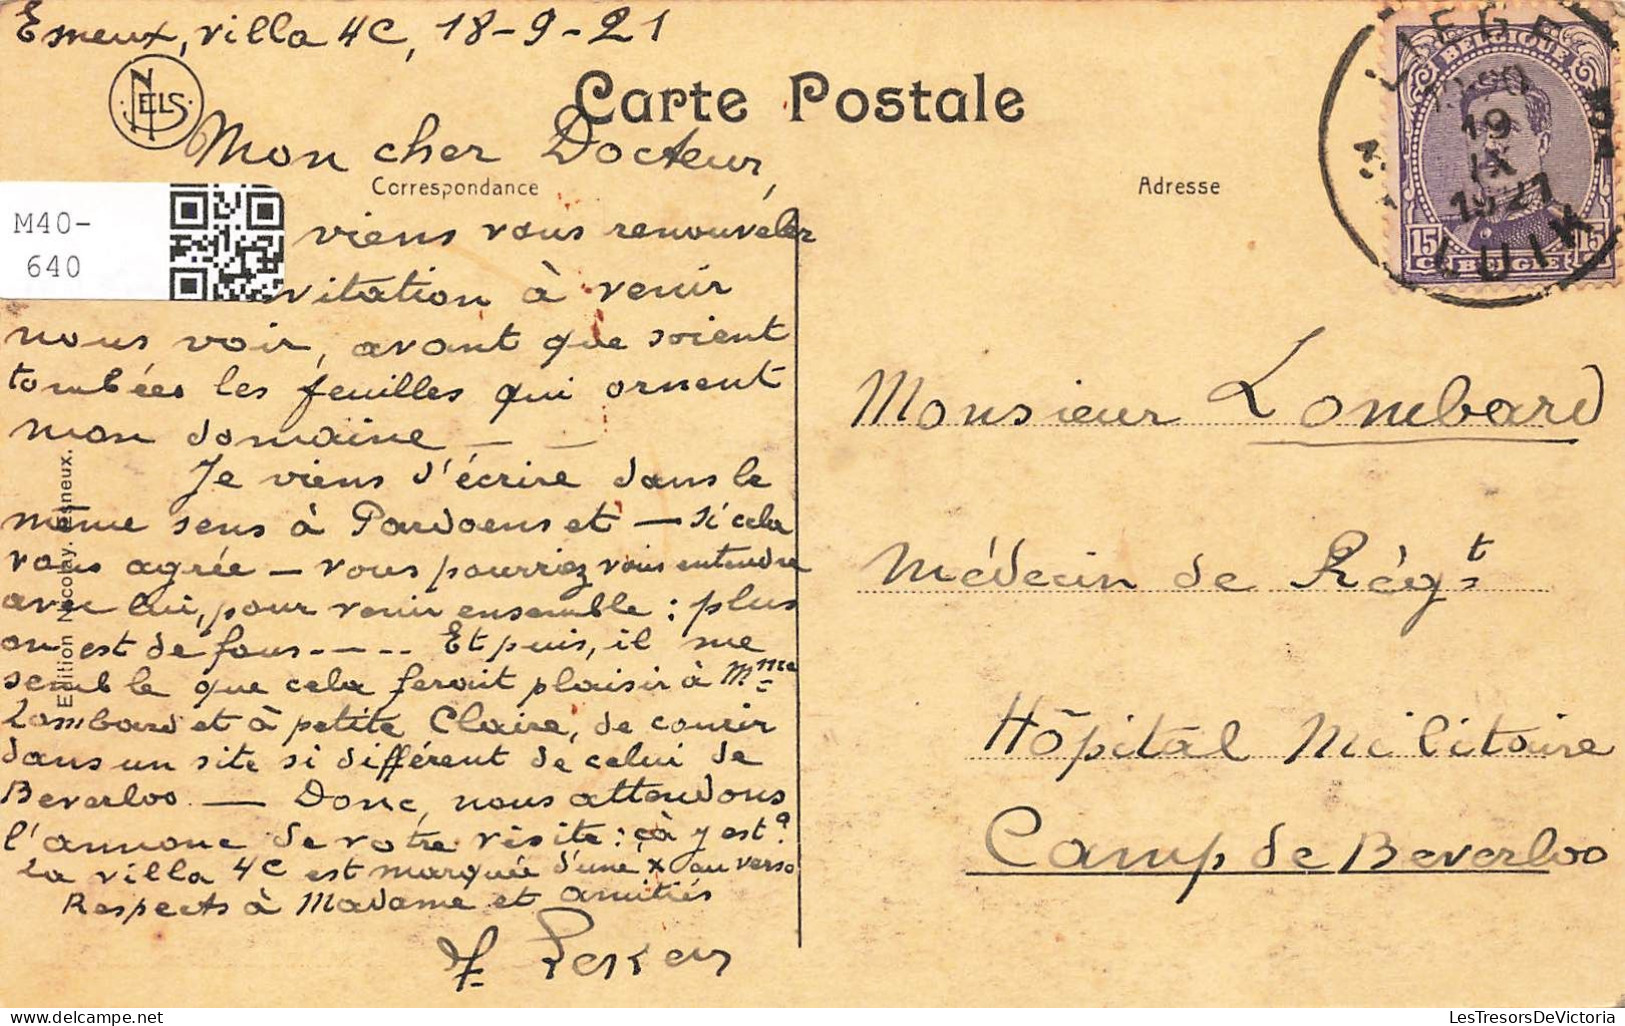 Esneux, villa 4C, 18-9-21
NELS
Carte Postale
Mon cher Docteur,
Correspondance
Adresse
M40-
640
viens vous renouveler
invitation à venir
nous voir, avant que soient
tombées les feuilles qui ornent
mon domaine — —
Je viens d'écrire dans le
même sens à Pardoens et — si cela
vous agrée — vous pourriez vous entendre
avec lui, pour venir ensemble : plus
on est de fous---- Et puis, il me
semble que cela ferait plaisir à Mme
Lombard et à petite Claire, de courir
dans un site si différent de celui de
Beverloo — Donc, nous attendons
l'annonce de votre visite : çà y est?
La villa 4C est marquée d'une x au verso
Respects à Madame et amitiés
Edition Nicolay. Esneux.
LIEGE
19
IX
1921
LUIK
BELGIQUE
15 C
BELGIË
15 C
Monsieur Lombard
Médecin de Régt
Hôpital Militaire
Camp de Beverloo
LesTresorsDeVictoria.com